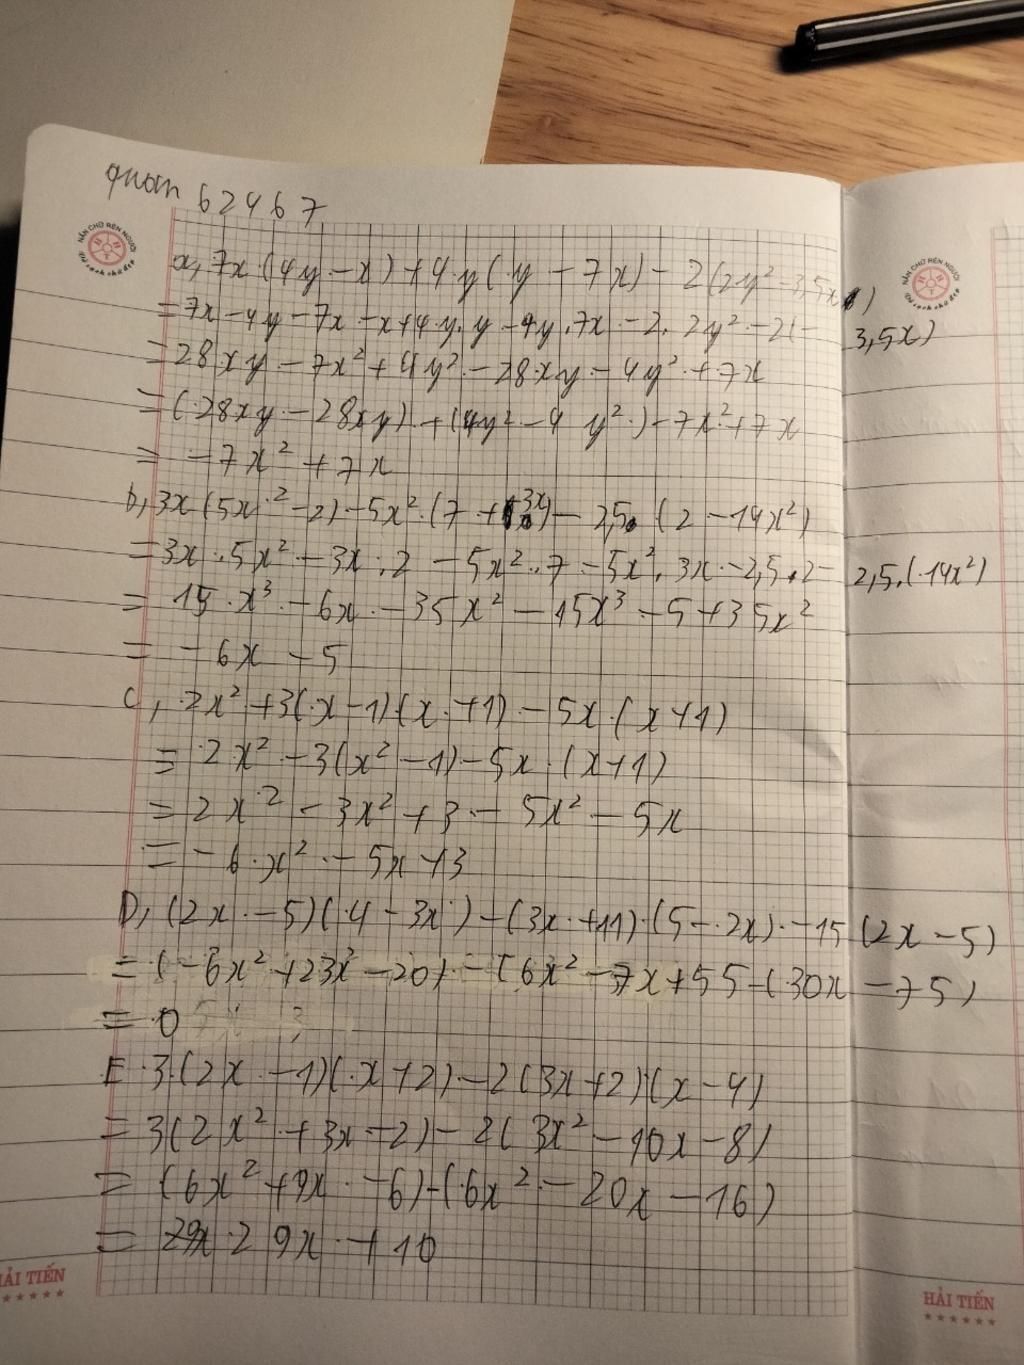 quan 62467
NẮN CHỮ RÈN NGƯỜI
a, 7x(4y-x)+4y(y-7x)-2(2y²-3,5x)
=7x-4y-7x-x+4y.y-4y.7x-2.2y²-2(-3,5x)
=28xy-7x²+4y²-28xy-4y²+7x
=(28xy-28xy)+(4y²-4y²)-7x²+7x
= -7x²+7x
b, 3x(5x²-2)-5x²(7+3x)-2,5.(2-14x²)
=3x.5x²-3x.2-5x².7-5x².3x-2,5.2-2,5.(14x²)
= 15x³-6x-35x²-15x³-5+35x²
= -6x-5
C, 2x²+3(x-1)(x+1)-5x(x+1)
= 2x²-3(x²-1)-5x.(x+1)
= 2x²-3x²+3-5x²-5x
= -6x²-5x+3
D, (2x-5)(4-3x)-(3x+11)(5-2x)-15(2x-5)
=(-6x²+23x-20)-(6x²-7x+55-(30x-75)
= 0
E 3(2x-1)(x+2)-2(3x+2)(x-4)
= 3(2x²+3x-2)-2(3x²-10x-8)
= (6x²+9x-6)-(6x²-20x-16)
= 29x+10
HẢI TIẾN
HẢI TIẾN